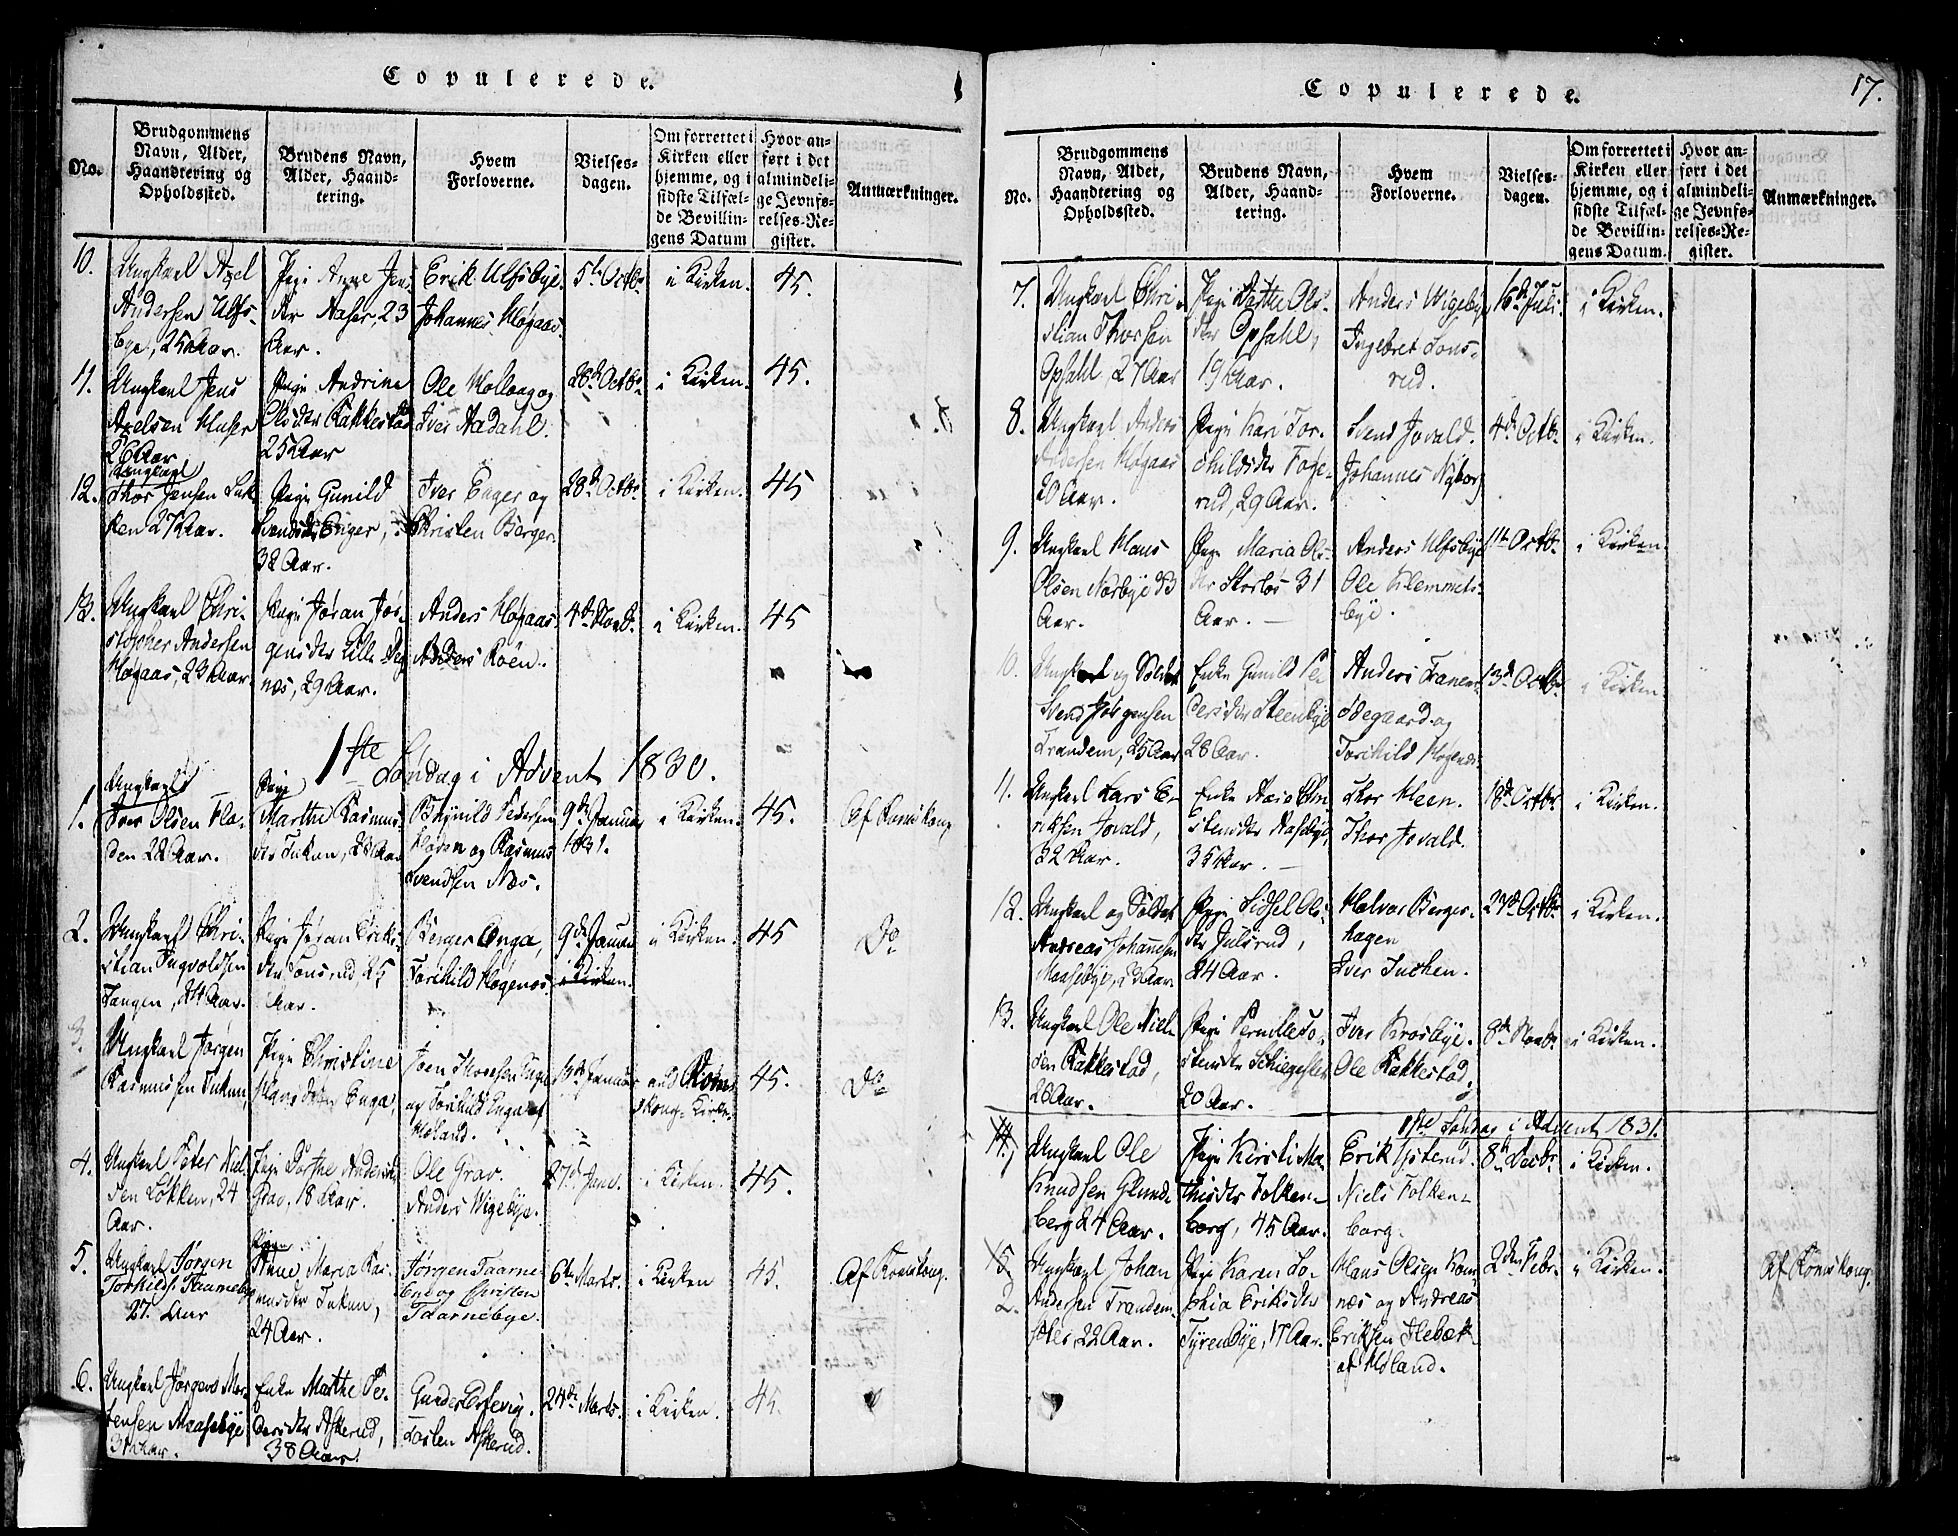 Copulerede.
No.
Brudgommens Navn, Alder, Haandtering og Opholdssted.
Brudens Navn, Alder, Haandtering.
Hvem Forloverne.
Vielsesdagen.
Om forrettet i Kirken eller hjemme, og i sidste Tilfælde Bevillingens Datum
Hvor anført i det almindelige Jevnførelses-Register.
Anmærkninger.
10.
Ungkarl Axel
Andersen Ulfs-
bye, 25 Aar.
Pige Anne Jens
Aaser, 23
Aar.
Erik Ulfsbye.
Johannes Høgaas.
5te Octbr
i Kirken.
45.
11.
Ungkarl Jens
Axelsen Huser
26 Aar
Pige Andrine
Olsdtr Kakkestad
25 Aar
Ole Kollaag og
Iver Aadahl.
28de Octbr
i Kirken.
45.
12.
Ungkarl
Thor Jensen
27 Aar.
Pige Gunild
Svendsdr Enger,
32 Aar.
Iver Enger og
Christen Berger.
28de Octbr
i Kirken.
45
13.
Ungkarl Chri-
stopher Andersen
Høgaas, 23 Aar.
Pige Jøran Jør-
gensdtr Lille
næs, 29 Aar.
Anders Høgaas.
Anders Roën.
4de Novb.
i Kirken.
45
1ste Søndag i Advent 1830.
1.
Ungkarl
Iver Olsen Fla-
den 22 Aar.
Pige
Marthe Rasmus-
dtr Tukun, 28 Aar
Brynild Pedersen
og Rasmus
Svendsen Næs.
9de Januar
1831.
i Kirken.
45.
Af Romskong
2.
Ungkarl Chri-
stian Ingvoldsen
Tangen, 24 Aar.
Pige Jøran Eriks-
dtr Tonsrud, 25
Aar.
Berger Onga,
Torchild Høgenæs.
9de Januar
i Kirken.
i Kirken.
45
Do
3.
Ungkarl Jørgen
Rasmussen Tukun,
Pige Christine
Hansdatter Enga,
Joen Thoresen
og Torchild Enga af
Høland.
Januar
ved Röms
skong-Kirke.
45.
Do
4.
Ungkarl Peter Niel-
sen Løkken, 24
Aar.
Pige Dorthe Andersdr
Grav, 18 Aar.
Ole Grav.
Anders Wigebye.
27de Janr.
i Kirken.
45.
5.
Ungkarl Jørgen
Torkilds. Taarnebye
27. Aar
Pigen
Anne Maria Ras-
musdtr Tukun,
24 Aar.
Jørgen Taarne-
bye og Christen
Taarnebye.
6te Marts.
i Kirken
45.
Af Romskong.
6.
Ungkarl Jørgen Mor-
tensen Maasebye
31 Aar.
Enke Marthe Pe-
dersdtr Askerud,
38 Aar.
Gunder
Torsten Askerud.
24de Marts.
i Kirken.
45.
Copulerede.
17.
No.
Brudgommens Navn, Alder, Haandtering og Opholdssted.
Brudens Navn, Alder, Haandtering.
Hvem Forloverne.
Vielsesdagen.
Om forrettet i Kirken eller hjemme, og i sidste Tilfælde Bevillingens Datum.
Hvor anført i det almindelige Jevnførelses-Register.
Anmærkninger.
7.
Ungkarl Chri-
stian Thorsen
Opsahl 27 Aar
Pige Dorthe Ols-
dtr Opsahl,
19 Aar.
Anders Wigebye
Ingebret Tons-
rud.
16de Juli.
i Kirken.
8.
Ungkarl Anders
Høgaas
20 Aar.
Pige Kari Tor-
childsdtr Foge-
rud, 29 Aar.
Svend Jovald.
Johannes Nyborg
4de Octbr
i Kirken.
9.
Ungkarl Hans
Olsen Norbye 23
Aar.
Pige Maria Ols-
dtr Storløs 31
Aar.
Anders Ulfsbye
Ole Klemmets-
bye.
11te Octbr.
i Kirken.
10.
Ungkarl og Soldat
Svend Jørgensen
Trandem, 25 Aar
Enke Gunild Pe-
dersdtr Steenbye
28 Aar.
Anders Franer-
ødegaard og
Torchild Høgenæs.
13de Octbr
i Kirken
11.
Ungkarl Lars E-
riksen Jovald,
32 Aar.
Enke Chri-
stensdtr
35 Aar.
Thor Heen.
Thor Jovald.
18de Octbr.
i Kirken.
12.
Ungkarl og Soldat
Andreas Johannesen
Maasebye, 23 Aar.
Pige Sidsel Ols-
dtr Julsrud,
24 Aar.
Halvor Berger-
hagen
Iver Inchen.
23de Octbr
i Kirken.
13.
Ungkarl Ole Niel-
sen Kakkestad,
28 Aar.
Pige Pernille To-
stensdtr
20 Aar.
Iver Krosbye.
Ole Kakkestad.
8de Novbr
i Kirken.
1ste Søndag i Advent 1831.
14.
1
Ungkarl Ole
Knudsen Glund-
berg 24 Aar.
Pige Kirsti Ma-
thisdtr Folken-
borg, 45 Aar.
Erik Ysterud.
Niels Folken-
borg.
8de Decbr.
i Kirken.
15.
2.
Ungkarl Johan
Andersen Trandem-
22 Aar.
Pige Karen So-
phia Eriksdtr
Tyrenbye, 17 Aar.
Hans Olsen Kam-
næs og Andreas
Eriksen Flebæk
af Høland.
2den Febr.
i Kirken.
Af Römskong.